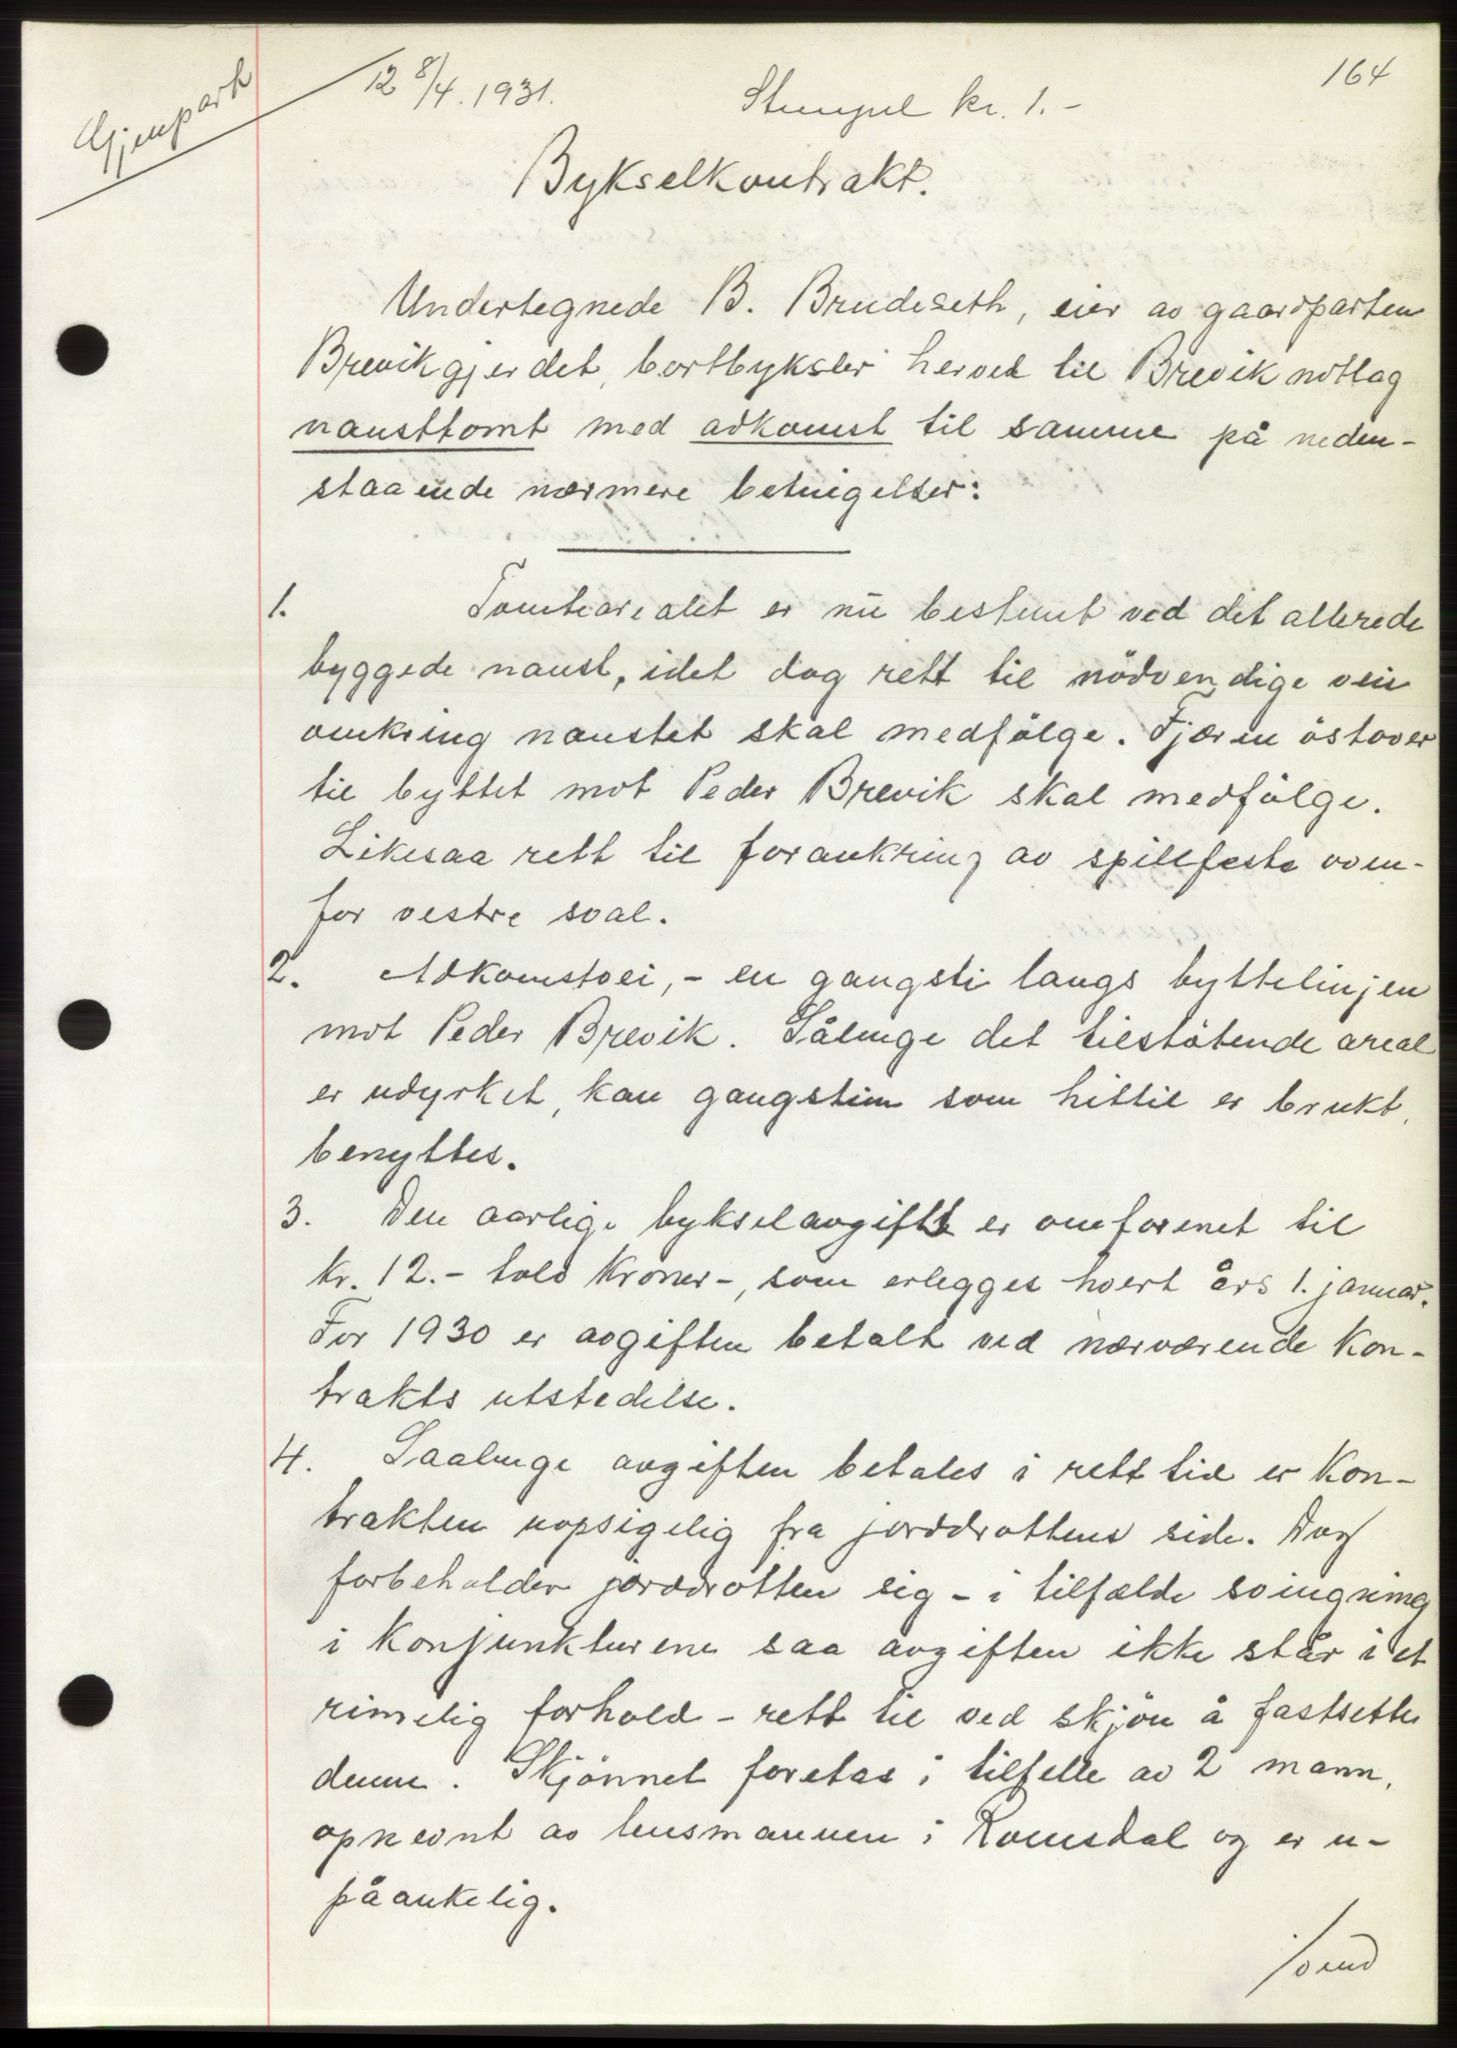 Gjenpart
12 8/4. 1931.
Stempel kr. 1.-
164
Bykselkontrakt.
Undertegnede B. Brudeseth, eier av gaardparten
Brevikgjerdet, bortbyksler herved til Brevik notlag
nausttomt med adkomst til samme på neden-
staaende nærmere betingelser:
1. Tomtearealet er nu bestemt ved det allerede
byggede naust, idet dog rett til nödvendige vei
omkring naustet skal medfölge. Fjæren östover
til byttet mot Peder Brevik skal medfölge.
Likesaa rett til forankring av spillfeste oven-
for vestre sval.
2. Adkomstvei, - en gangsti langs byttelinjen
mot Peder Brevik. Sålenge det tilstötende areal
er udyrket, kan gangstien som hittil er brukt,
benyttes.
3. Den aarlige bykselavgift er omforenet til
kr. 12.- tolv kroner-, som erlegges hvert års 1. januar.
For 1930 er avgiften betalt ved nærværende kon-
trakts utstedelse.
4. Saalenge avgiften betales i rett tid er kon-
trakten uopsigelig fra jorddrottens side. Dog
forbeholder jorddrotten sig - i tilfælde svingning
i konjunkturene saa avgiften ikke står i et
rimelig forhold - rett til ved skjön å fastsette
denne. Skjönnet foretas i tilfelle av 2 mann,
opnevnt av lensmannen i Romsdal og er u-
påankelig.